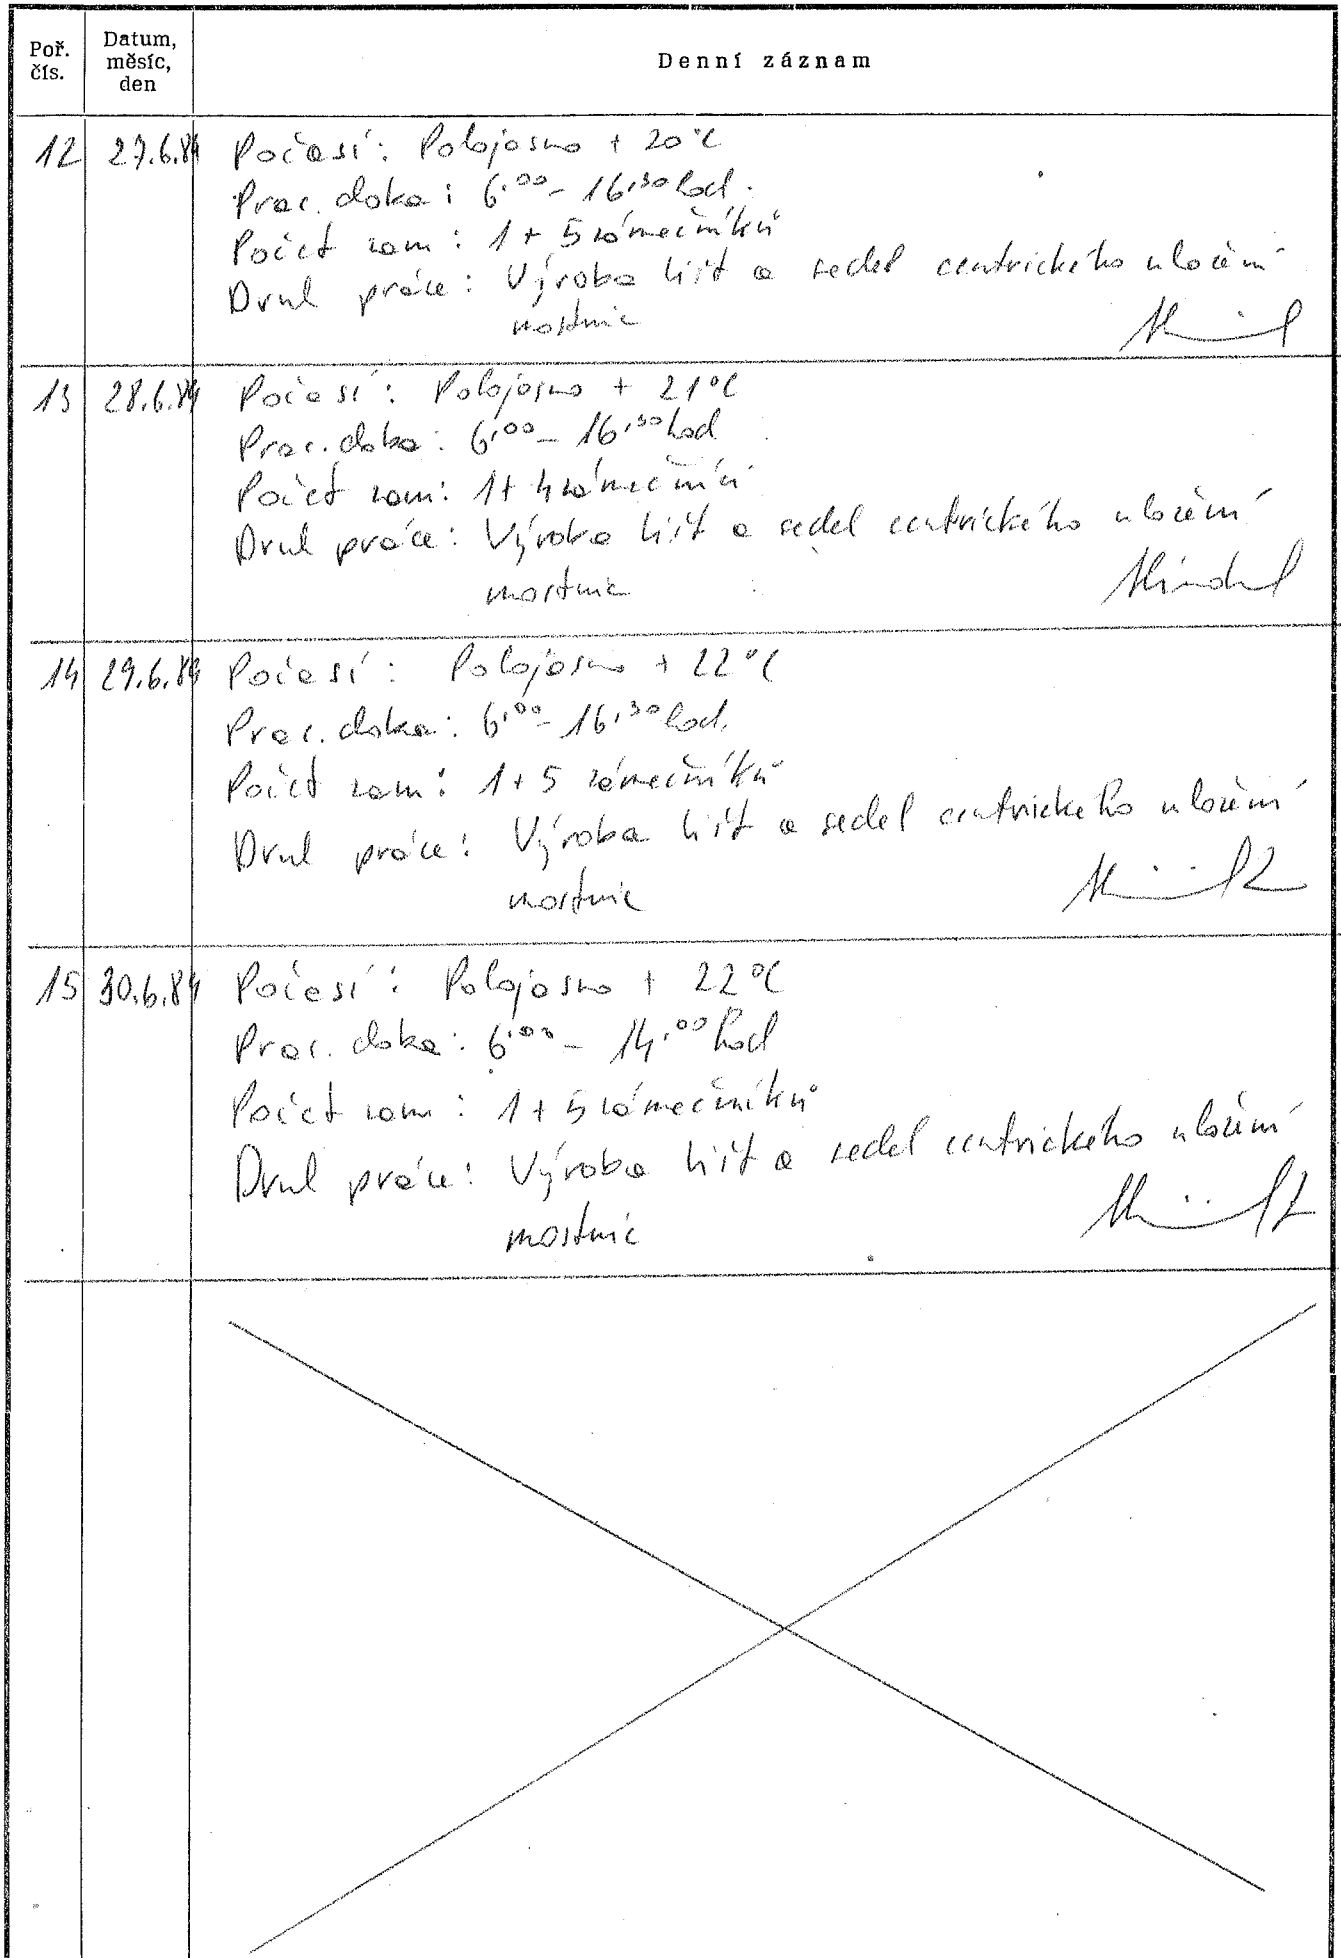 Poř. čís.
Datum, měsíc, den
Denní záznam
12 27.6.84 Počasí: Polojasno + 20°C
Prac. doba: 6,00 - 16,30 hod.
Počet zam: 1 + 5 zámečníků
Druh práce: Výroba lišt a sedel centrického uložení
mostnic
13 28.6.84 Počasí: Polojasno + 21°C
Prac. doba: 6,00 - 16,30 hod
Počet zam: 1 + 4 zámečníci
Druh práce: Výroba lišt a sedel centrického uložení
mostnic
14 29.6.84 Počasí: Polojasno + 22°C
Prac. doba: 6,00 - 16,30 hod.
Počet zam: 1 + 5 zámečníků
Druh práce: Výroba lišt a sedel centrického uložení
mostnic
15 30.6.84 Počasí: Polojasno + 22°C
Prac. doba: 6,00 - 14,00 hod
Počet zam: 1 + 5 zámečníků
Druh práce: Výroba lišt a sedel centrického uložení
mostnic